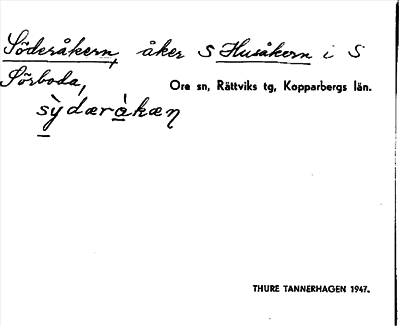 Söderåkern, åker S Husåkern i S
Sörboda, Ore sn, Rättviks tg, Kopparbergs län.
sỳdæràkæŋ
THURE TANNERHAGEN 1947.